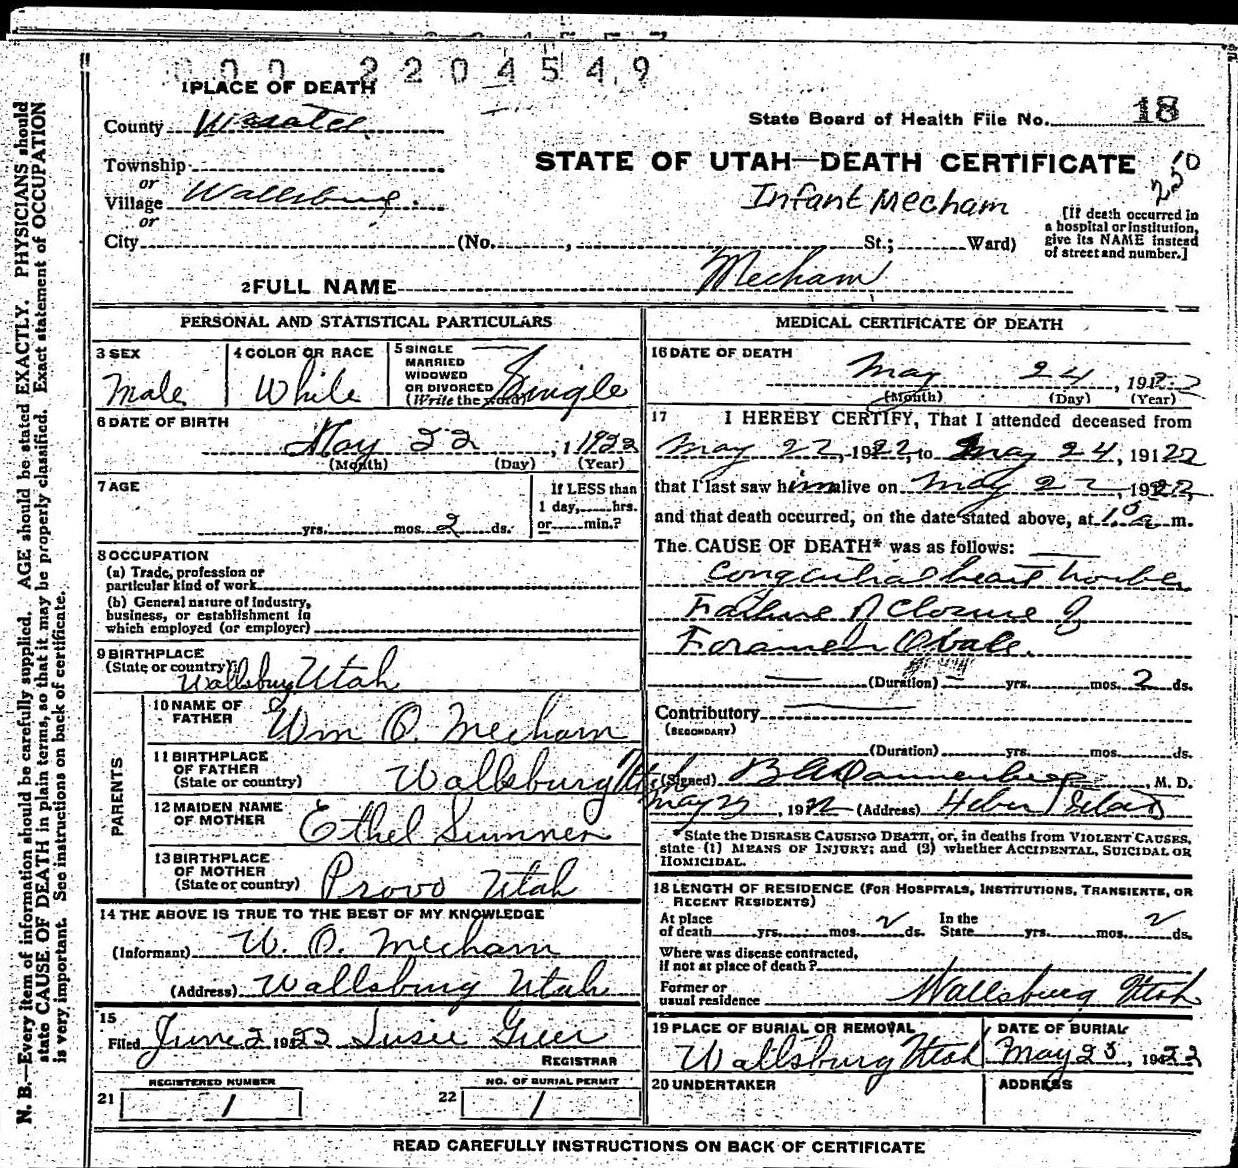 000 2204549
1 PLACE OF DEATH
County Wasatch
State Board of Health File No. 18
Township
or
Village Wallsburg
or
City (No. , St.; Ward)
STATE OF UTAH—DEATH CERTIFICATE
250
Infant Mecham
[If death occurred in
a hospital or institution,
give its NAME instead
of street and number.]
2 FULL NAME Mecham
PERSONAL AND STATISTICAL PARTICULARS
3 SEX
Male
4 COLOR OR RACE
White
5 SINGLE
MARRIED
WIDOWED
OR DIVORCED
(Write the word)
Single
6 DATE OF BIRTH
May 22, 1922
(Month) (Day) (Year)
7 AGE
yrs. mos. 2 ds.
If LESS than
1 day, hrs.
or min.?
8 OCCUPATION
(a) Trade, profession or
particular kind of work
(b) General nature of industry,
business, or establishment in
which employed (or employer)
9 BIRTHPLACE
(State or country)
Wallsburg Utah
PARENTS
10 NAME OF
FATHER
Wm O. Mecham
11 BIRTHPLACE
OF FATHER
(State or country)
Wallsburg Utah
12 MAIDEN NAME
OF MOTHER
Ethel Sumner
13 BIRTHPLACE
OF MOTHER
(State or country)
Provo Utah
14 THE ABOVE IS TRUE TO THE BEST OF MY KNOWLEDGE
(Informant) W. O. Mecham
(Address) Wallsburg Utah
15
Filed June 2 1922 Susie Greer
REGISTRAR
REGISTERED NUMBER
21 1
NO. OF BURIAL PERMIT
22 1
MEDICAL CERTIFICATE OF DEATH
16 DATE OF DEATH
May 24, 1922
(Month) (Day) (Year)
17 I HEREBY CERTIFY, That I attended deceased from
May 22, 1922, to May 24, 1922
that I last saw him alive on May 22, 1922,
and that death occurred, on the date stated above, at 10 a m.
The CAUSE OF DEATH* was as follows:
Congenital heart trouble
Failure of Closure of
Foramen Ovale.
(Duration) yrs. mos. 2 ds.
Contributory
(SECONDARY)
(Duration) yrs. mos. ds.
(Signed) Dannenberg, M. D.
May, 1922 (Address) Heber Utah
*State the DISEASE CAUSING DEATH, or, in deaths from VIOLENT CAUSES,
state (1) MEANS OF INJURY; and (2) whether ACCIDENTAL, SUICIDAL OR
HOMICIDAL.
18 LENGTH OF RESIDENCE (FOR HOSPITALS, INSTITUTIONS, TRANSIENTS, OR
RECENT RESIDENTS)
At place
of death yrs. mos. 2 ds.
In the
State yrs. mos. 2 ds.
Where was disease contracted,
if not at place of death?
Former or
usual residence Wallsburg Utah
19 PLACE OF BURIAL OR REMOVAL
Wallsburg Utah
DATE OF BURIAL
May 25, 1922
20 UNDERTAKER
ADDRESS
READ CAREFULLY INSTRUCTIONS ON BACK OF CERTIFICATE
N. B.—Every item of information should be carefully supplied. AGE should be stated EXACTLY. PHYSICIANS should
state CAUSE OF DEATH in plain terms, so that it may be properly classified. Exact statement of OCCUPATION
is very important. See instructions on back of certificate.